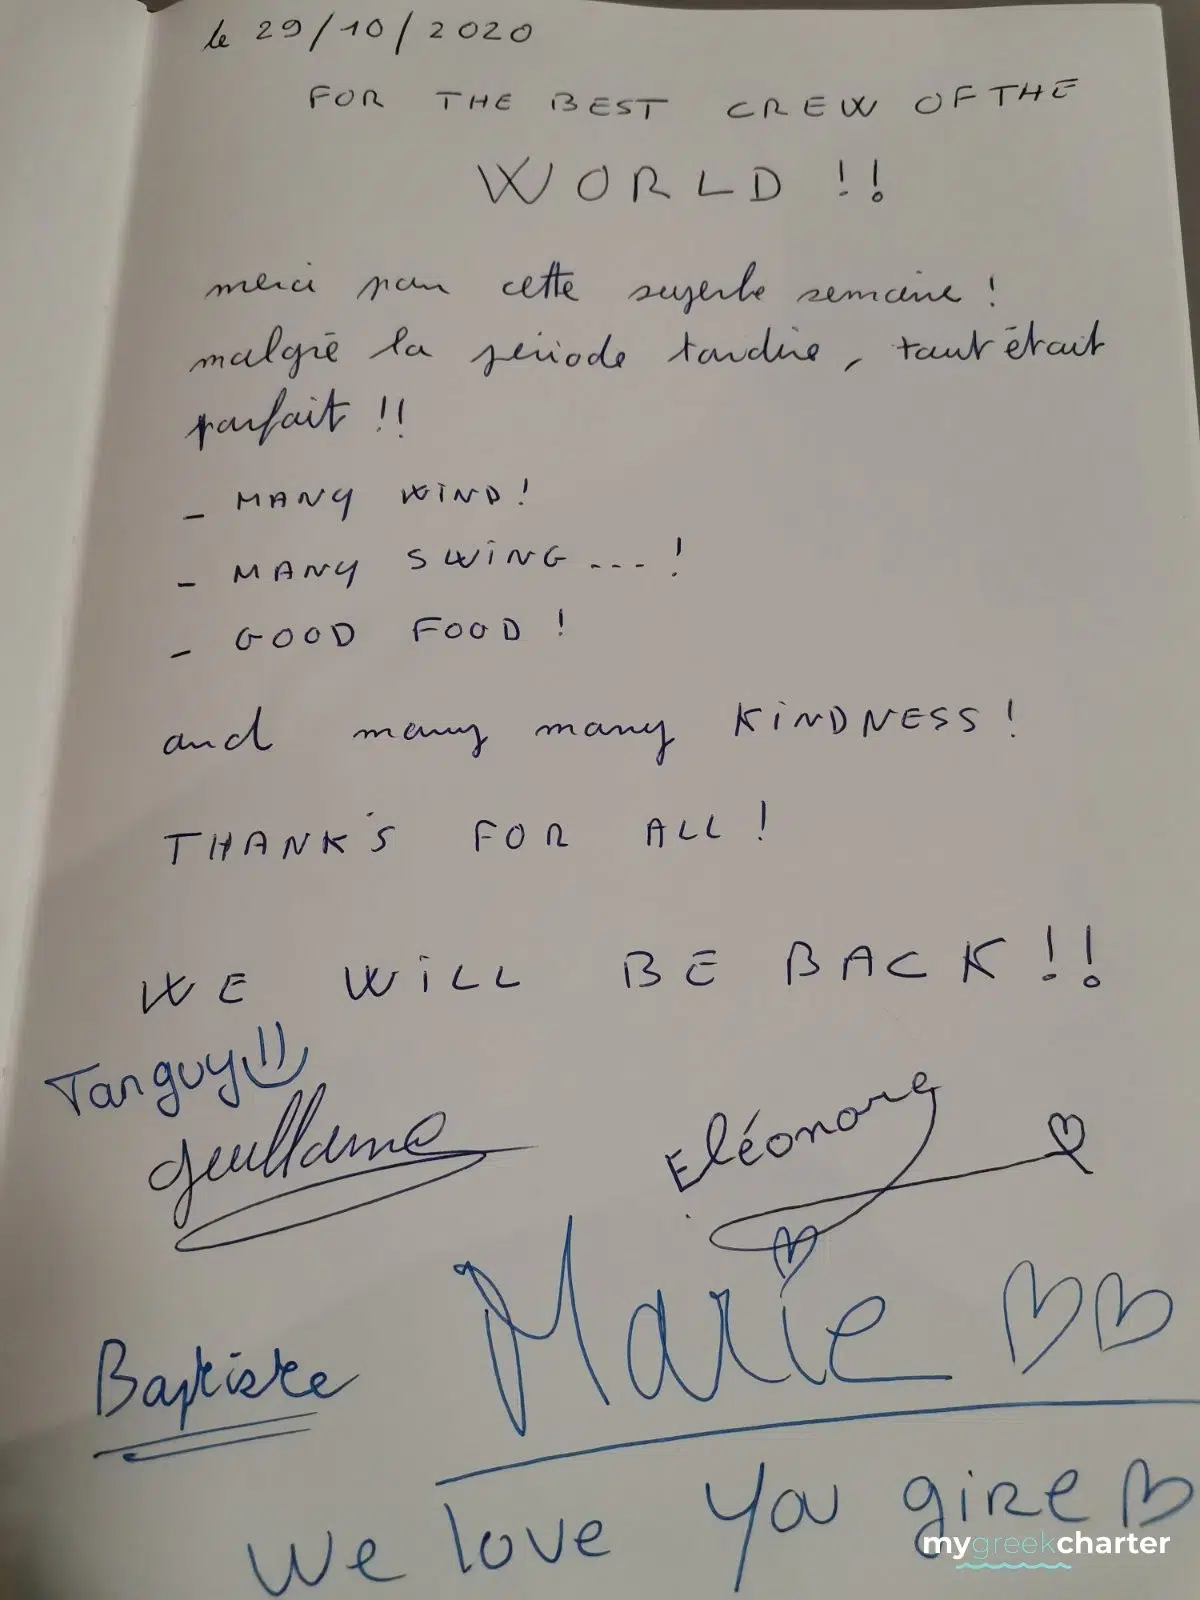 le 29/10/2020
FOR THE BEST CREW OF THE
WORLD !!
merci pour cette superbe semaine !
malgré la période tardive, tout était
parfait !!
- MANY WIND !
- MANY SWING ... !
- GOOD FOOD !
and many many KINDNESS !
THANK'S FOR ALL !
WE WILL BE BACK !!
Tanguy
Guillaume
Eléonore
Marie
Baptiste
We love you
mygreekcharter